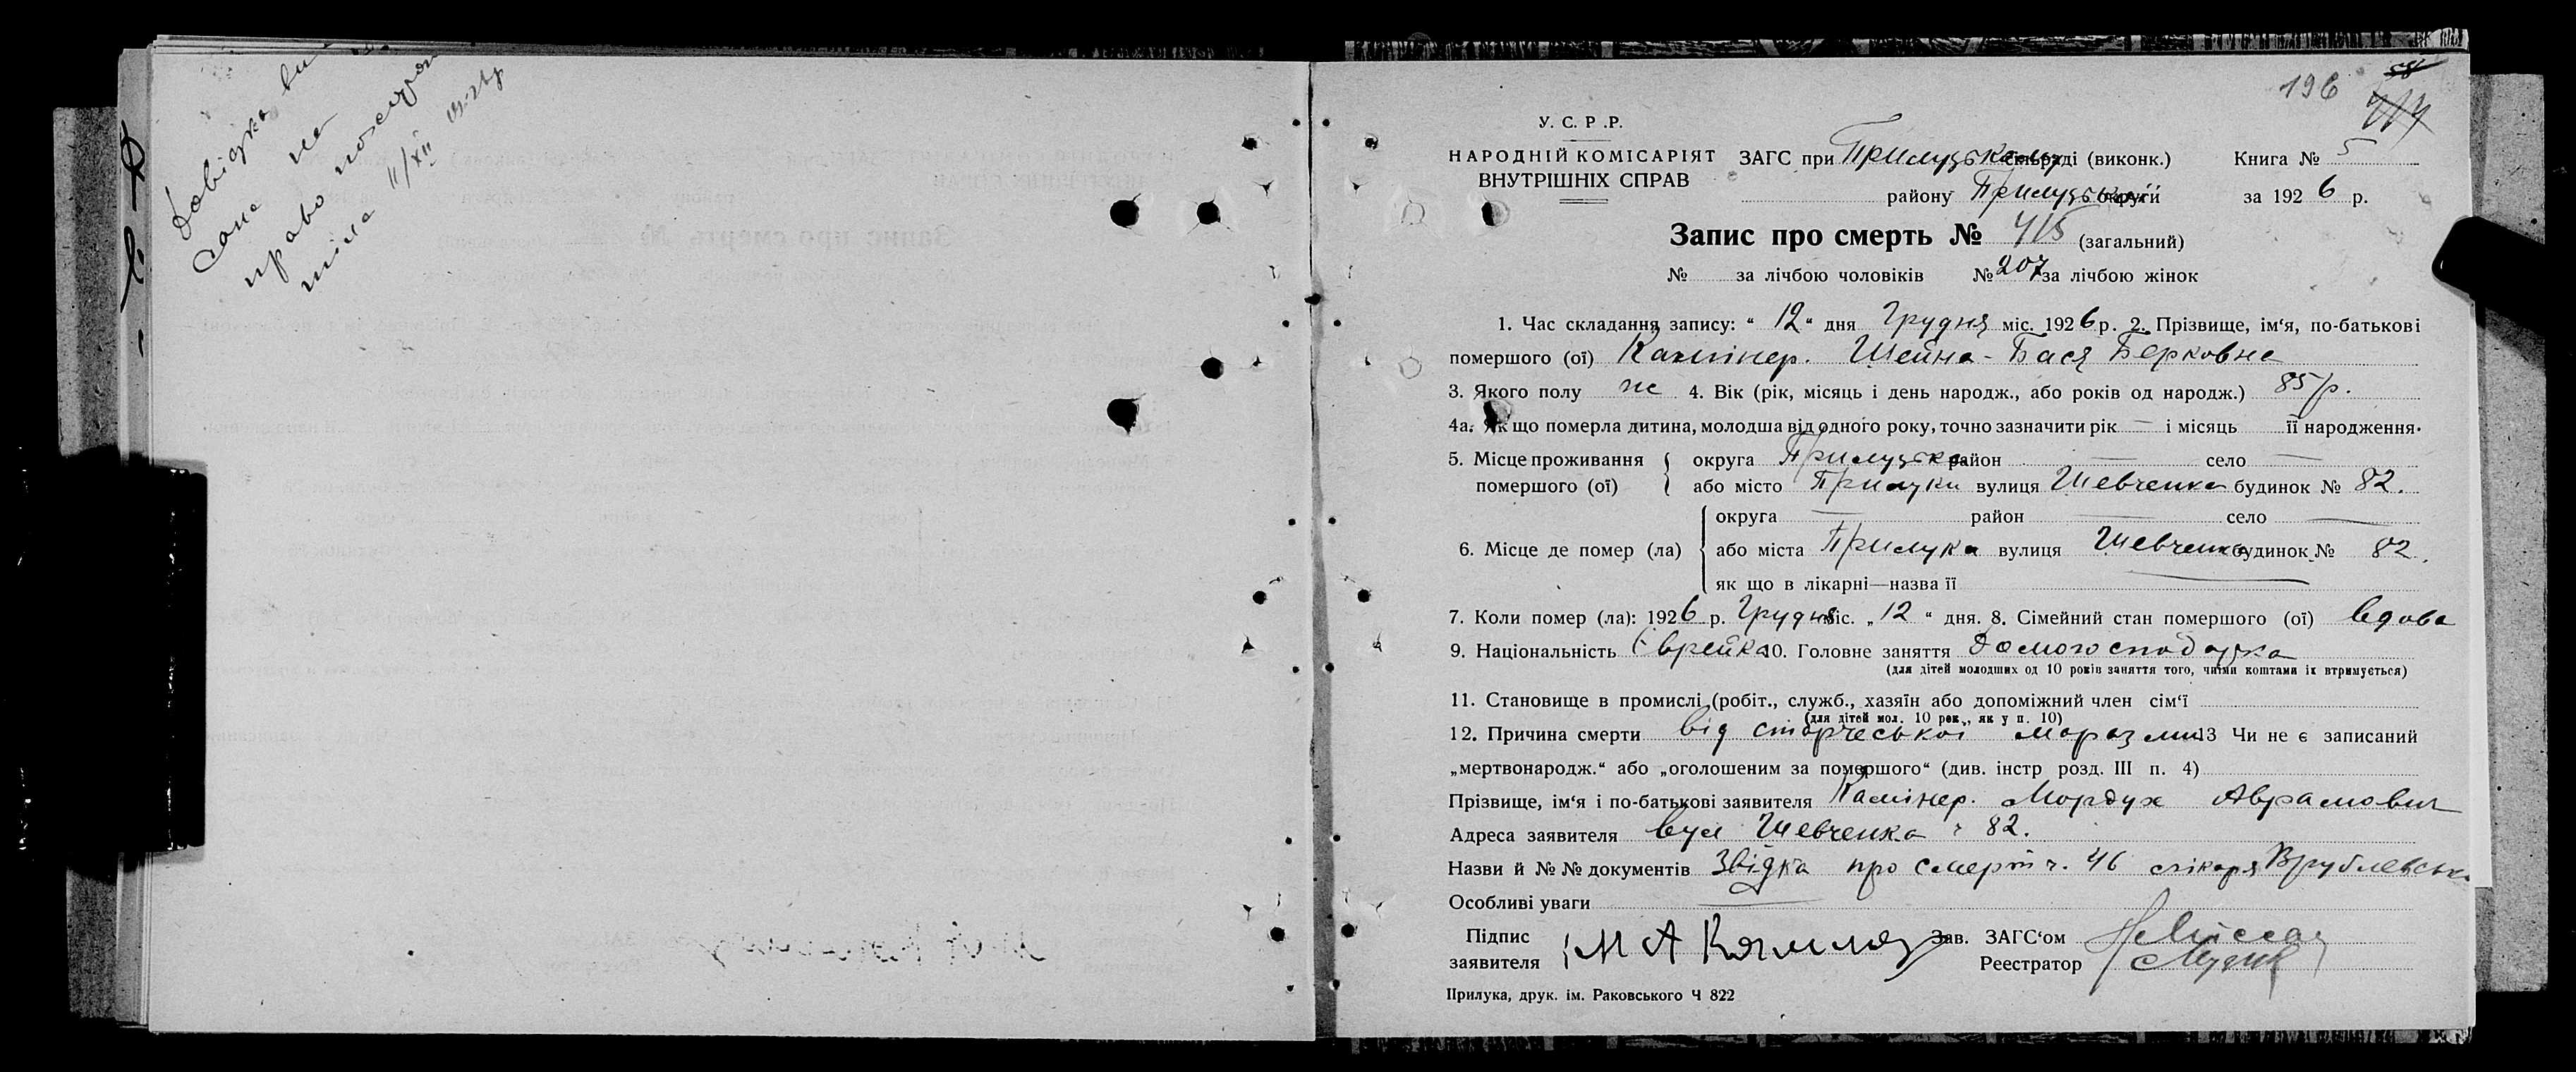 Довідка
дана на
право
тіла 11/XII
196 58
У. С. Р. Р.
НАРОДНІЙ КОМІСАРІЯТ ЗАГС при Прилуцькому сільраді (виконк.) Книга № 5
ВНУТРІШНІХ СПРАВ району Прилуцької округи за 1926 р.
Запис про смерть № 415 (загальний)
№ за лічбою чоловіків № 207 за лічбою жінок
1. Час складання запису: „ 12 “ дня Грудня міс. 1926 р. 2. Прізвище, ім‘я, по-батькові
помершого (ої) Камінер. Шейна-Бася Берковна
3. Якого полу ж 4. Вік (рік, місяць і день народж., або років од народж.) 85 р.
4а. Як що померла дитина, молодша від одного року, точно зазначити рік — і місяць її народження.
5. Місце проживання округа Прилуцька район — село —
помершого (ої) або місто Прилуки вулиця Шевченка будинок № 82.
округа — район — село —
6. Місце де помер (ла) або міста Прилука вулиця Шевченка будинок № 82.
як що в лікарні—назва її —
7. Коли помер (ла): 1926 р. Грудня міс. „ 12 “ дня. 8. Сімейний стан помершого (ої) вдова
9. Національність Єврейка 10. Головне заняття Домогосподарка
(для дітей молодших од 10 років заняття того, чиїми коштами їх втримується)
11. Становище в промислі (робіт., служб., хазяїн або допоміжний член сім‘ї
(для дітей мол. 10 рок., як у п. 10)
12. Причина смерти від старчеської маразми 13 Чи не є записаний
„мертвонародж.“ або „оголошеним за помершого“ (див. інстр розд. III п. 4)
Прізвище, ім‘я і по-батькові заявителя Камінер. Мордух Аврамович
Адреса заявителя вул Шевченка ч 82.
Назви й №№ документів Звідка про смерть ч. 46 лікаря Врублевськ
Особливі уваги —
Підпис Зав. ЗАГС‘ом
заявителя М А Реєстратор
Прилука, друк. ім. Раковського Ч 822